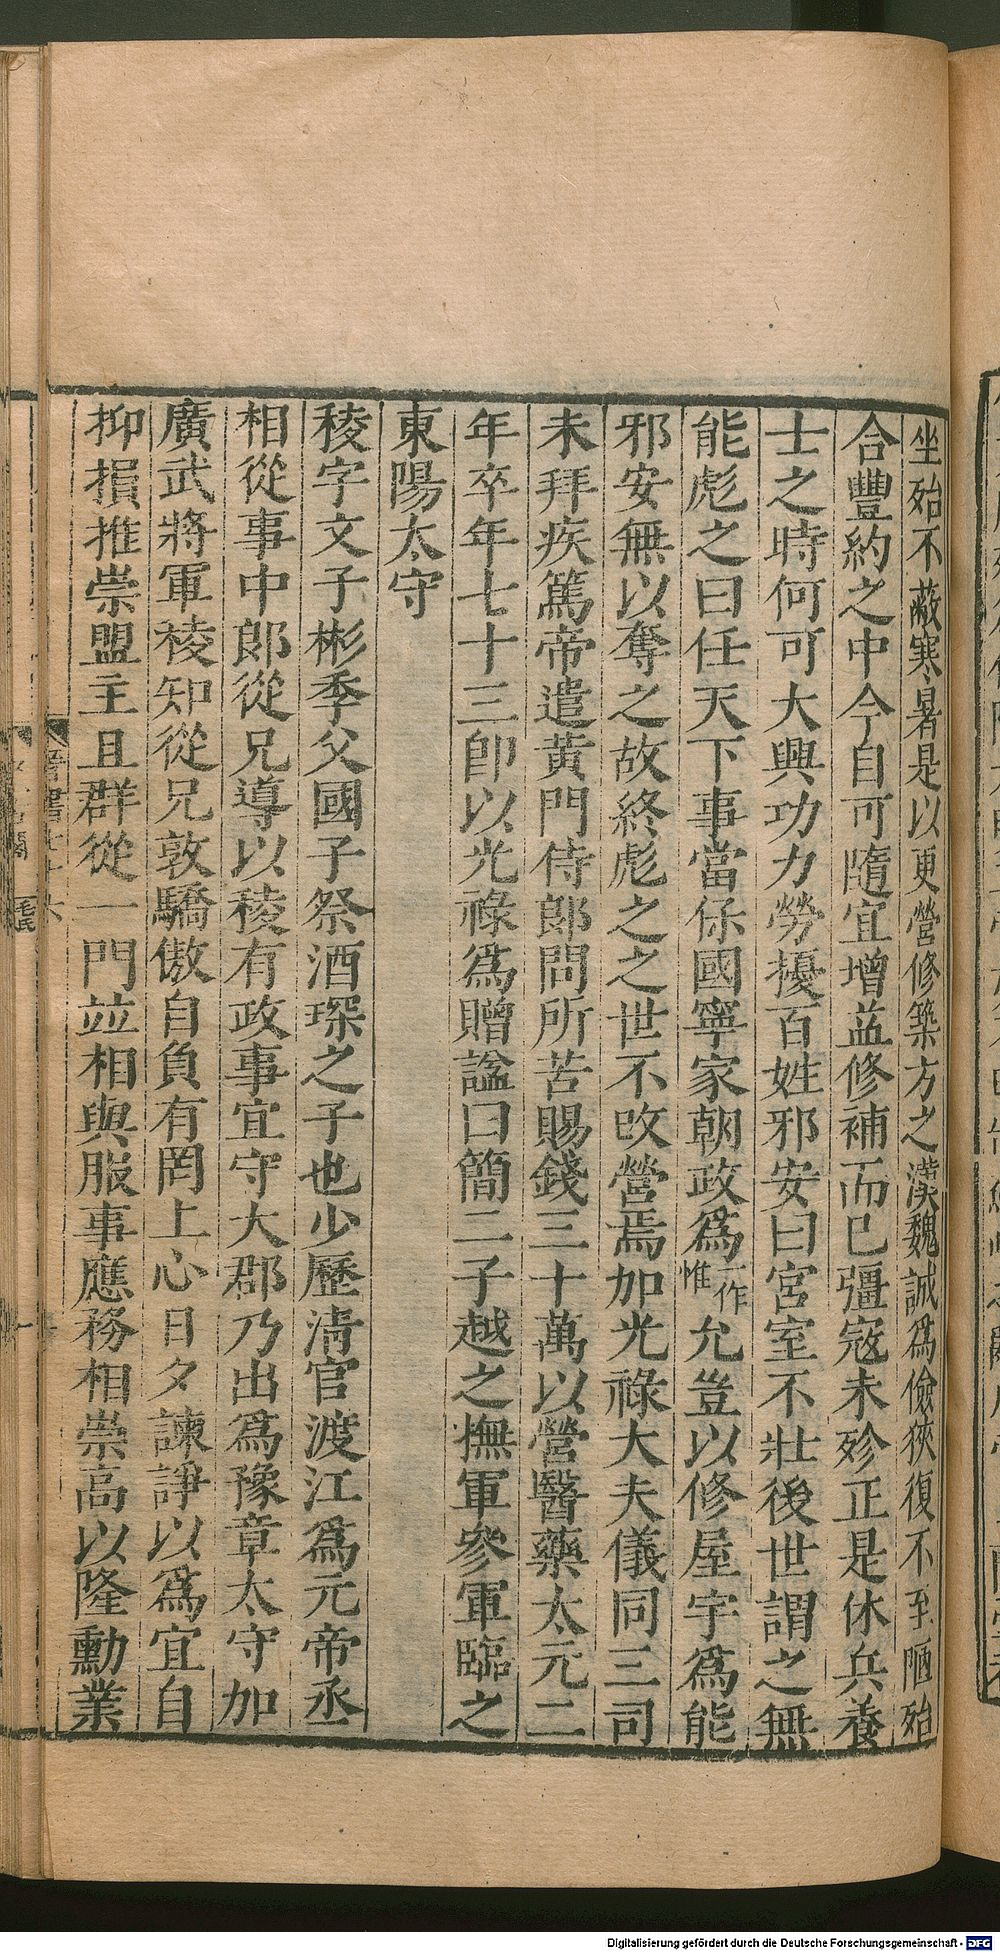 坐殆不蔽寒暑是以更營修築方之漢魏誠爲儉狹復不至陋殆
合豐約之中今自可隨宜增益修補而已彊寇未殄正是休兵養
士之時何可大興功力勞擾百姓邪安曰宮室不壯後世謂之無
能彪之曰任天下事當保國寧家朝政爲一作惟允豈以修屋宇爲能
邪安無以奪之故終彪之之世不改營焉加光祿大夫儀同三司
未拜疾篤帝遣黃門侍郎問所苦賜錢三十萬以營醫藥太元二
年卒年七十三卽以光祿爲贈諡曰簡二子越之撫軍參軍臨之
東陽太守
稜字文子彬季父國子祭酒琛之子也少歷淸官渡江爲元帝丞
相從事中郎從兄導以稜有政事宜守大郡乃出爲豫章太守加
廣武將軍稜知從兄敦驕傲自負有罔上心日夕諫諍以爲宜自
抑損推崇盟主且群從一門並相與服事應務相崇高以隆勳業
晉書七十六
毛氏
Digitalisierung gefördert durch die Deutsche Forschungsgemeinschaft - DFG